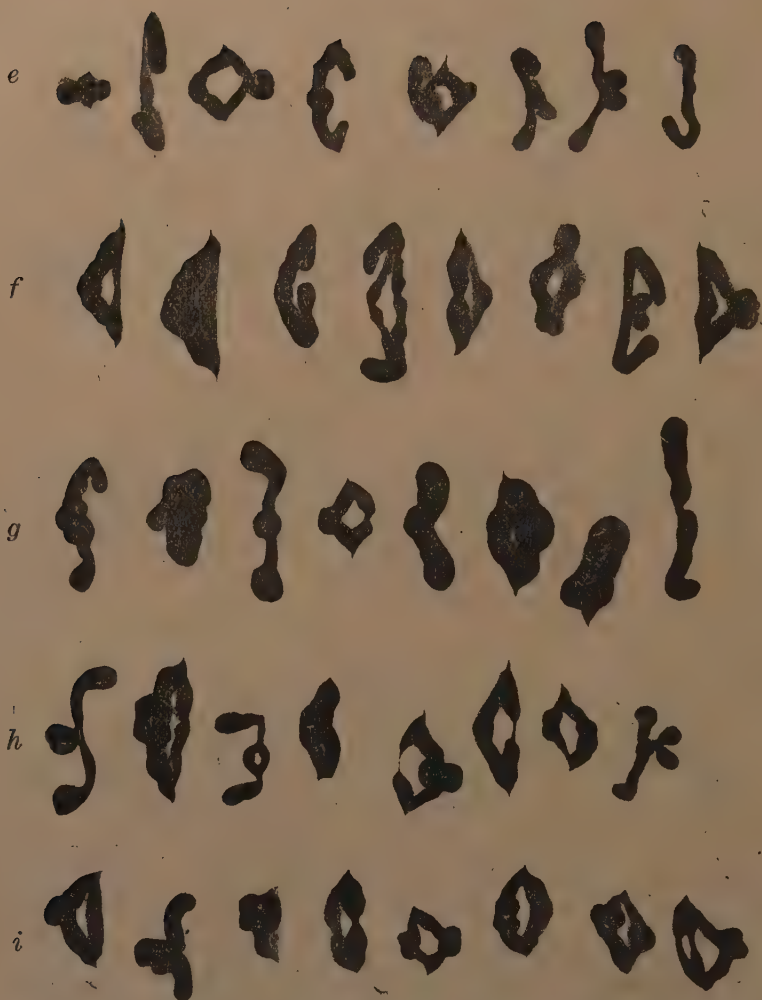 e
f
g
h
i